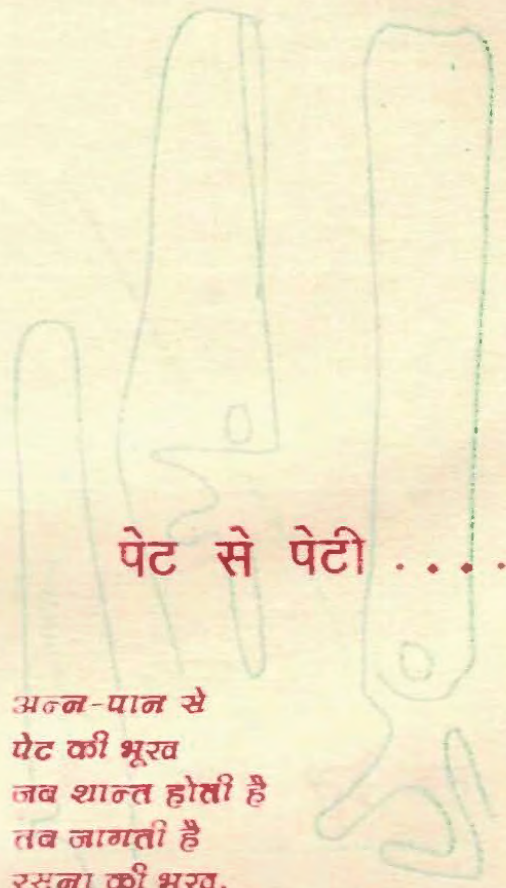 पेट से पेटी . . . .
अन्न-पान से
पेट की भूख
जब शान्त होती है
तब जागती है
रसना की भूख,